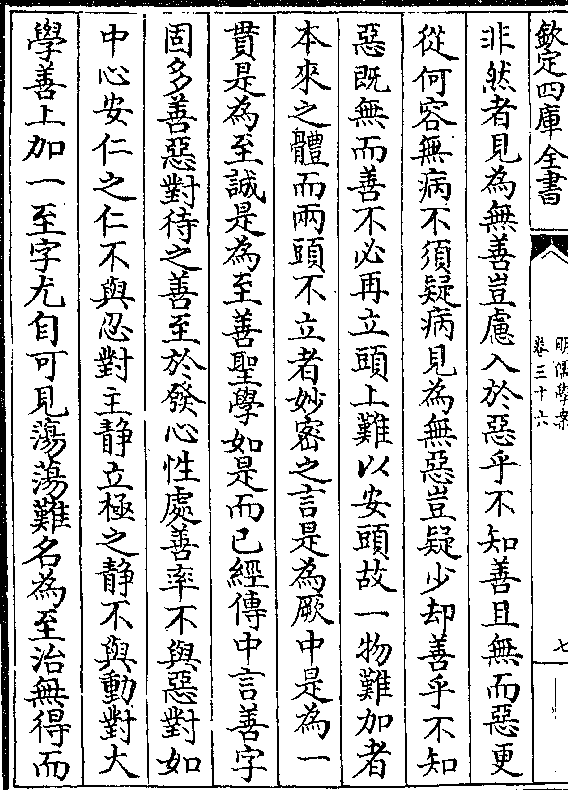 欽定四庫全書
明儒學案
卷三十六
七
非然者見為無善豈慮入於惡乎不知善且無而惡更
從何容無病不須疑病見為無惡豈疑少却善乎不知
惡既無而善不必再立頭上難以安頭故一物難加者
本來之體而兩頭不立者妙密之言是為厥中是為一
貫是為至誠是為至善聖學如是而已經傳中言善字
固多善惡對待之善至於發心性處善率不與惡對如
中心安仁之仁不與忍對主静立極之静不與動對大
學善上加一至字尤自可見蕩蕩難名為至治無得而